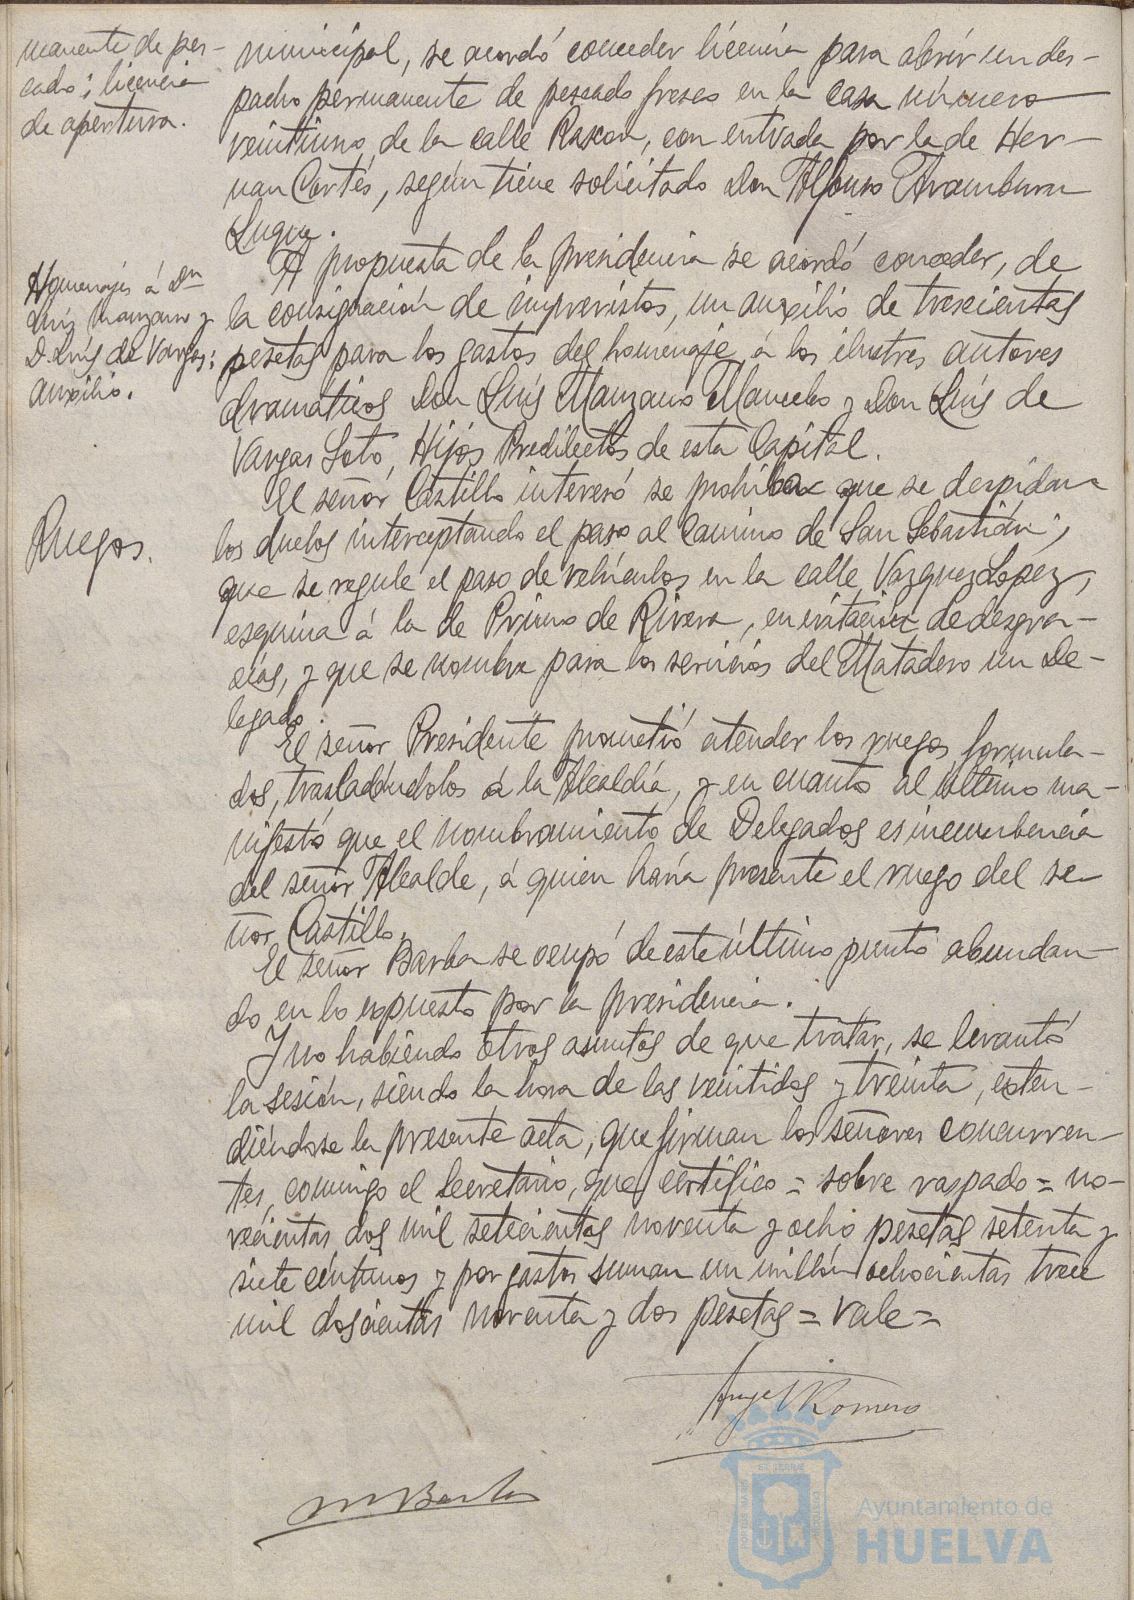 manente de pes-
cado; licencia
de apertura.
municipal, se acordó conceder licencia para abrir un des-
pacho permanente de pescado fresco en la casa número
veintiuno de la calle Rascon, con entrada por la de Her-
nan Cortés, según tiene solicitado Don Alfonso Aramburu
Luque.
Homenajes á Dn
Luis Manzano y
D. Luís de Vargas:
auxilio.
A propuesta de la presidencia se acordó conceder, de
la consignación de imprevistos, un auxilio de trescientas
pesetas para los gastos del homenaje á los ilustres autores
dramaticos Don Luís Manzano Mancebo y Don Luís de
Vargas Soto, Hijos Predilectos de esta Capital.
Ruegos.
El señor Castillo interesó se prohiba que se despidan
los duelos interceptando el paso al Camino de San Sebastián;
que se regule el paso de vehículos en la calle Vazquez Lopez,
esquina á la de Primo de Rivera, en evitación de desgra-
cias, y que se nombre para los servicios del Matadero un De-
legado.
El señor Presidente prometió atender los ruegos formula-
dos, trasladándolos á la Alcaldía, y en cuanto al último ma-
nifestó que el nombramiento de Delegados es incumbencia
del señor Alcalde, á quien haría presente el ruego del se-
ñor Castillo.
El señor Barba se ocupó de este último punto abundan-
do en lo expuesto por la presidencia.
Y no habiendo otros asuntos de que tratar, se levantó
la sesión, siendo la hora de las veintidos y treinta, exten-
diéndose la presente acta, que firman los señores concurren-
tes, conmigo el Secretario, que certifico = sobre raspado = no-
vecientas dos mil setecientas noventa y ocho pesetas setenta y
siete céntimos y por gastos suman un millón ochocientas trece
mil doscientas noventa y dos pesetas = vale =
Angel Romero
M Barba
Ayuntamiento de
HUELVA